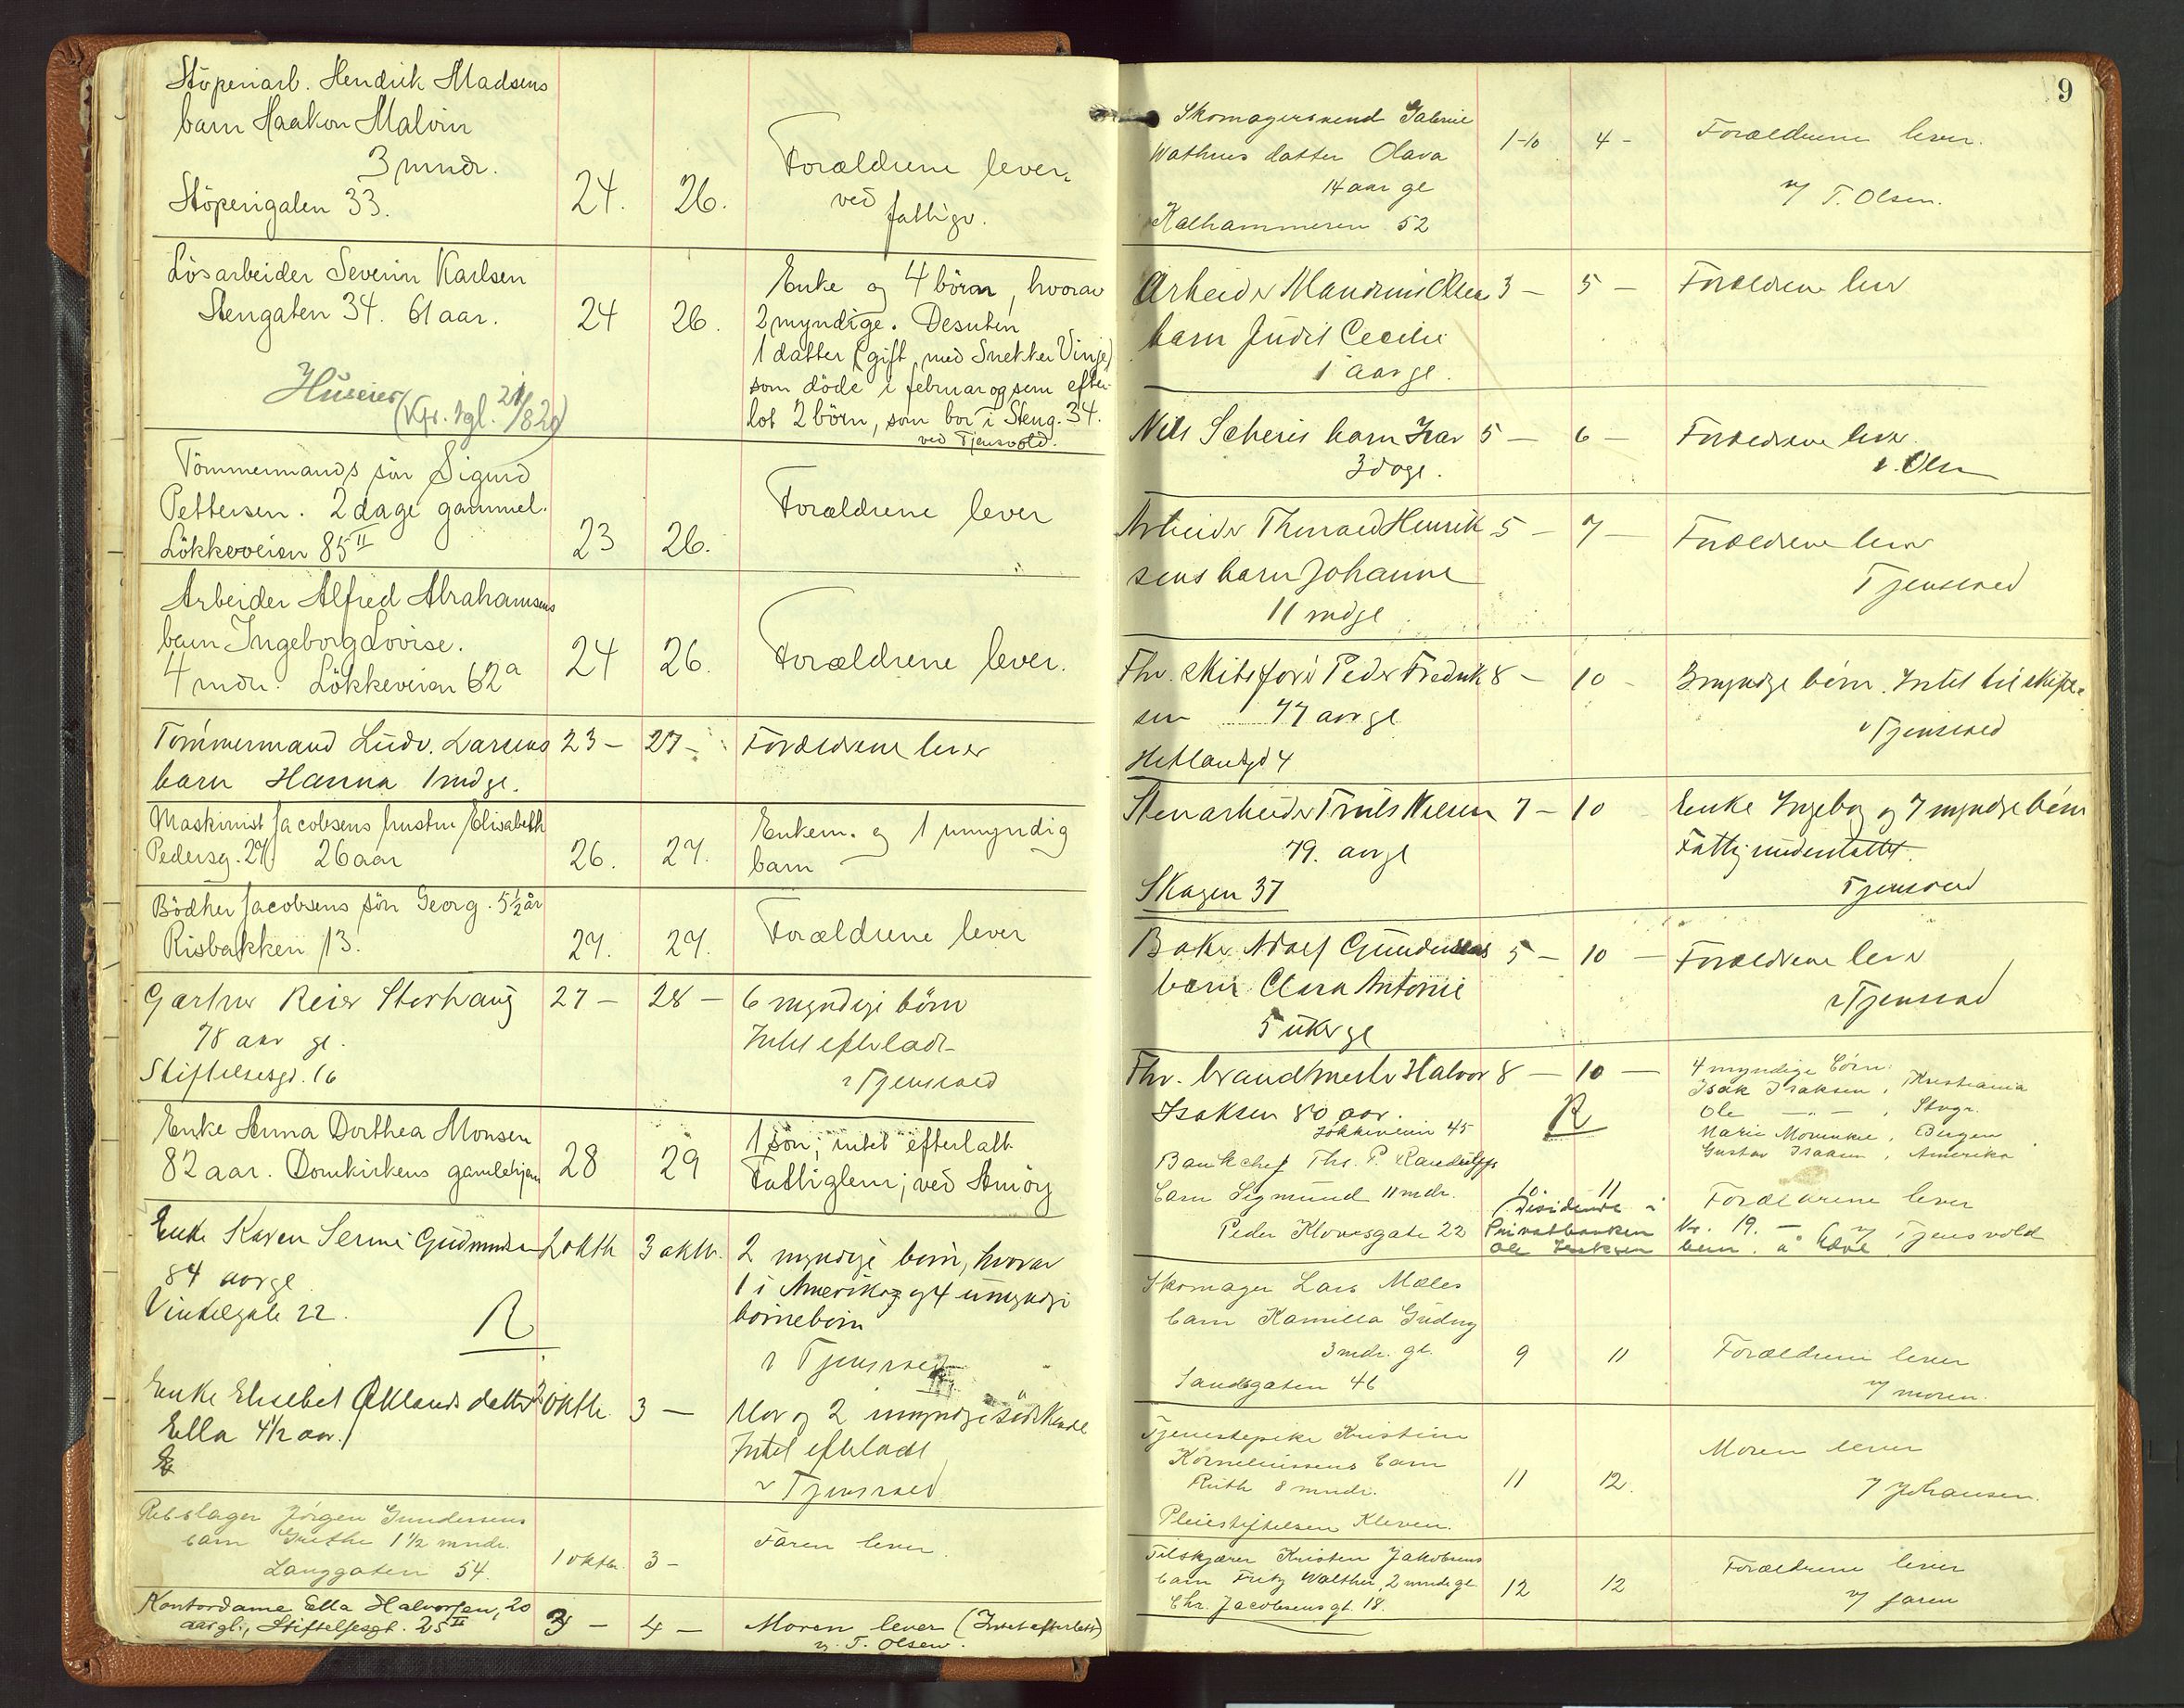 Støperiarb. Hendrik Madsens
barn Haakon Malvin
3 mndr.
Støperigaten 33. 24. 26. Forældrene lever.
ved fattigv.
Løsarbeider Severin Karlsen
Stengaten 34. 61 aar. 24 26.
Enke og 4 börn, hvorav
2 myndige. Desuten
1 datter (gift med Snekker Vinje)
som döde i februar og som efter-
lot 2 börn, som bor i Steng. 34.
ved Tjensvold.
Huseier
(Kfr. tgl. 21/8 20)
Tömmermands sön Sigurd
Pettersen. 2 dage gammel.
Lökkeveien 85 II 23 26. Forældrene lever
Arbeider Alfred Abrahamsens
barn Ingeborg Lovise.
4 mdr. Lökkeveien 62a 24 26. Forældrene lever.
Tömmermand Ludv. Larsens 23 – 27 – Forældrene lever
barn Hanna 1 md gl.
Maskinist Jacobsens hustru Elisabeth
Pedersg. 27 26 aar 26. 27. Enkem. og 1 umyndig
barn
Bödker Jacobsens sön Georg. 5 1/2 år
Risbakken 13. 27. 27. Forældrene lever
Gartner Reier Storhaug 27 – 28 – 6 myndige börn
78 aar gl. Intet efterladt
Stiftelsesgt. 16 v Tjensvold
Enke Anna Dorthea Monsen
82 aar. Domkirkens gamlehjem 28 29
1 sön; intet efterlatt.
Fattiglem; ved Amöy
Enke Karen Serine Gudmundsen 2 oktb 3 oktb. 2 myndige börn, hvorav
84 aar gl 1 i Amerika og 4 umyndige
Vinkelgate 22. börnebörn
R
v Tjensvold
Enke Elisabet Oklands datter 2 oktb. 3 – Mor og 2 umyndige södskende
Ella 4 1/2 aar. Intet efterladt
v Tjensvold
Rebslager Jörgen Gundersens
barn Grethe 1 1/2 mndr.
Langgaten 54. 1 oktbr. 3 – Faren lever.
Kontordame Ella Halvorsen, 20
aar gl., Stiftelsesgt. 25 II 3 – 4 – Moren lever (Intet efterlatt)
v. T. Olsen.
9
Skomagersvend Gabriel
Wathnes datter Olava 1-10 4 – Forældrene lever.
14 aar gl v/ T. Olsen.
Kalhammeren 52
Arbeider Mandrius Olsen 3 – 5 – Forældrene lever
barn Judit Cecilie
1 aar gl.
Nils Scheris barn Ivar 5 – 6 – Forældrene lever.
3 dage. v. Olsen
Arbeider Thorvald Henrik 5 – 7 – Forældrene lever
sens barn Johanne Tjensvold
11 md gl
Fhv. skibsförer Peder Fredrik 8 – 10 – 3 myndige börn. Intet til skifte.
sen 77 aar gl v Tjensvold
Hetlandsgt 4
Stenarbeider Truls Nilsen 7 – 10 Enke Ingeborg og 7 myndige börn
79. aar gl Fattigunderstöttet.
Skagen 37 Tjensvold
Baker Adolf Gundersens 5 – 10 – Forældrene lever
barn Clara Antonie v Tjensvold
5 uker gl
Fhv. brandmester Halvor 8 – 10 –
Isaksen 80 aar.
Løkkeveien 45
R
4 myndige börn:
Isak Isaksen, Kristiania
Ole —"—, Stvgr.
Marie, Bergen
Gustav Isaksen, Amerika
Bankchef Thr. P. Randulffs
barn Sigmund 11 mdr. 10 11 Forældrene lever
Peder Klovsgate 22 v/ Tjensvold
(Dividende i
Privatbanken kr. 19. –
Ole Isaksen bem. å hæve
Skomager Lars Mæles
barn Kamilla Gudny
3 mdr. gl. 9 11 Forældrene lever
Sandsgaten 46 v/ moren.
Tjenestepike Kristine
Korneliussens barn Moren lever
Ruth 8 mndr. 11 12. v/ Johansen.
Pleiestiftelsen Kleven.
Tilskjærer Kristen Jakobsens
barn Fritz Walther, 2 mndr gl. 12 12 Forældrene lever
Chr. Jacobsens gt. 18. v/ faren